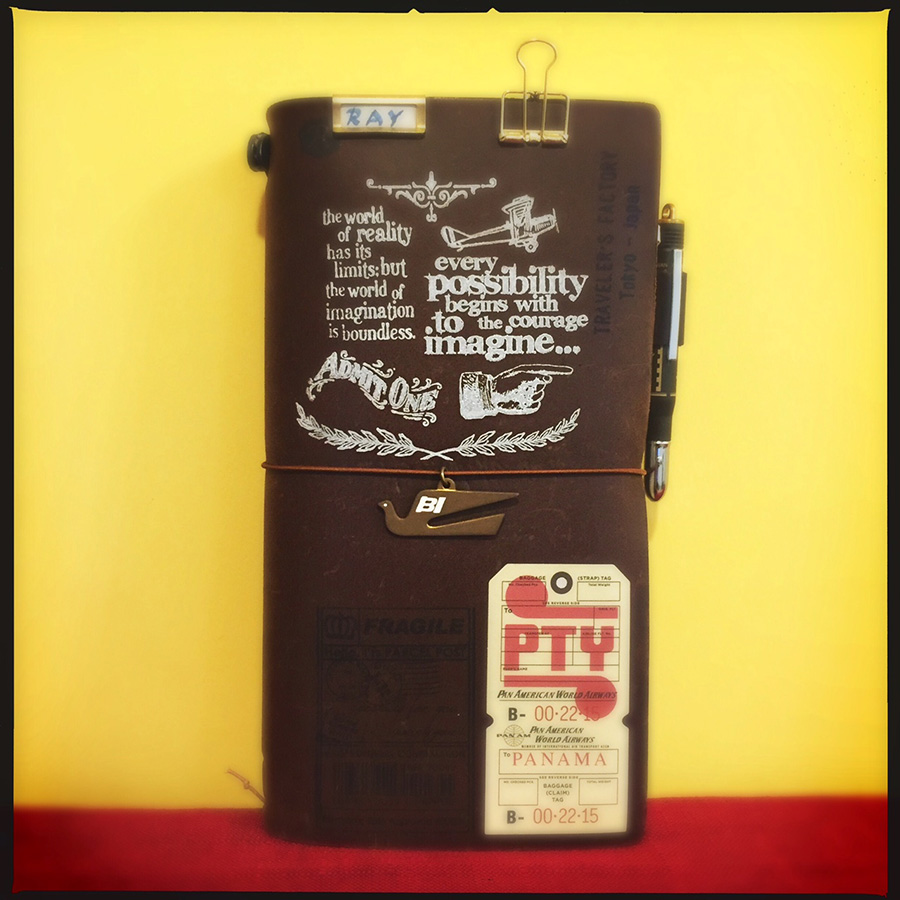 RAY
the world
of reality
has its
limits; but
the world of
imagination
is boundless.
every
possibility
begins with
to the courage
imagine...
ADMIT ONE
TRAVELER'S FACTORY
Tokyo - Japan
BI
FRAGILE
BAGGAGE (STRAP) TAG
Total Weight
SEE REVERSE SIDE
To
PTY
PAN AMERICAN WORLD AIRWAYS
B- 00·22·15
PAN AM
PAN AMERICAN
WORLD AIRWAYS
To PANAMA
SEE REVERSE SIDE
BAGGAGE
(CLAIM)
TAG
B- 00·22·15